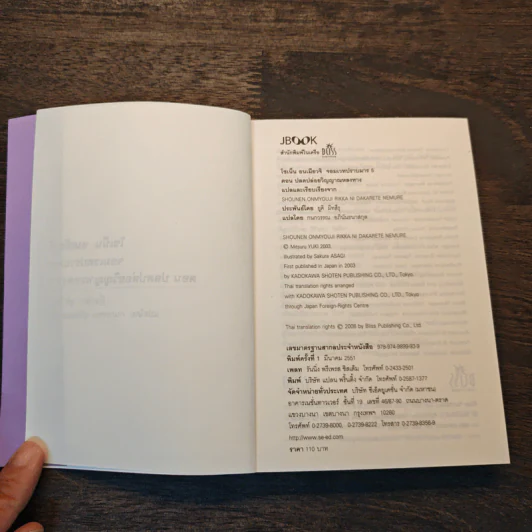 JBOOK
สำนักพิมพ์ในเครือ BLISS
โชเน็น อนเมียวจิ จอมเวทปราบมาร
ตอน ปลดปล่อยวิญญาณหลงทาง
แปลและเรียบเรียงจาก
SHOUNEN ONMYOUJI RIKKA NI DAKARETE NEMURE
ประพันธ์โดย ยูคิ มิทสึรุ
แปลโดย
SHOUNEN ONMYOUJI RIKKA NI DAKARETE NEMURE
© Mitsuru YUKI 2003,
Illustrated by Sakura ASAGI
First published in Japan in 2003
by KADOKAWA SHOTEN PUBLISHING CO., LTD., Tokyo.
Thai translation rights arranged
with KADOKAWA SHOTEN PUBLISHING CO., LTD., Tokyo
through Japan Foreign-Rights Centre
Thai translation rights © 2008 by Bliss Publishing Co., Ltd.
เลขมาตรฐานสากลประจำหนังสือ
พิมพ์ครั้งที่ 1 มีนาคม 2551
เพลท โทรศัพท์ 0-2433-2501
พิมพ์ บริษัท แปลน พริ้นติ้ง จำกัด โทรศัพท์ 0-2587-1377
จัดจำหน่ายทั่วประเทศ บริษัท ซีเอ็ดยูเคชั่น จำกัด (มหาชน)
อาคารเนชั่นทาวเวอร์ ชั้นที่ 19 เลขที่ 46/87-90 ถนนบางนา-ตราด
แขวงบางนา เขตบางนา กรุงเทพฯ 10260
โทรศัพท์ 0-2739-8000, 0-2739-8222 โทรสาร
http://www.se-ed.com
ราคา 110 บาท